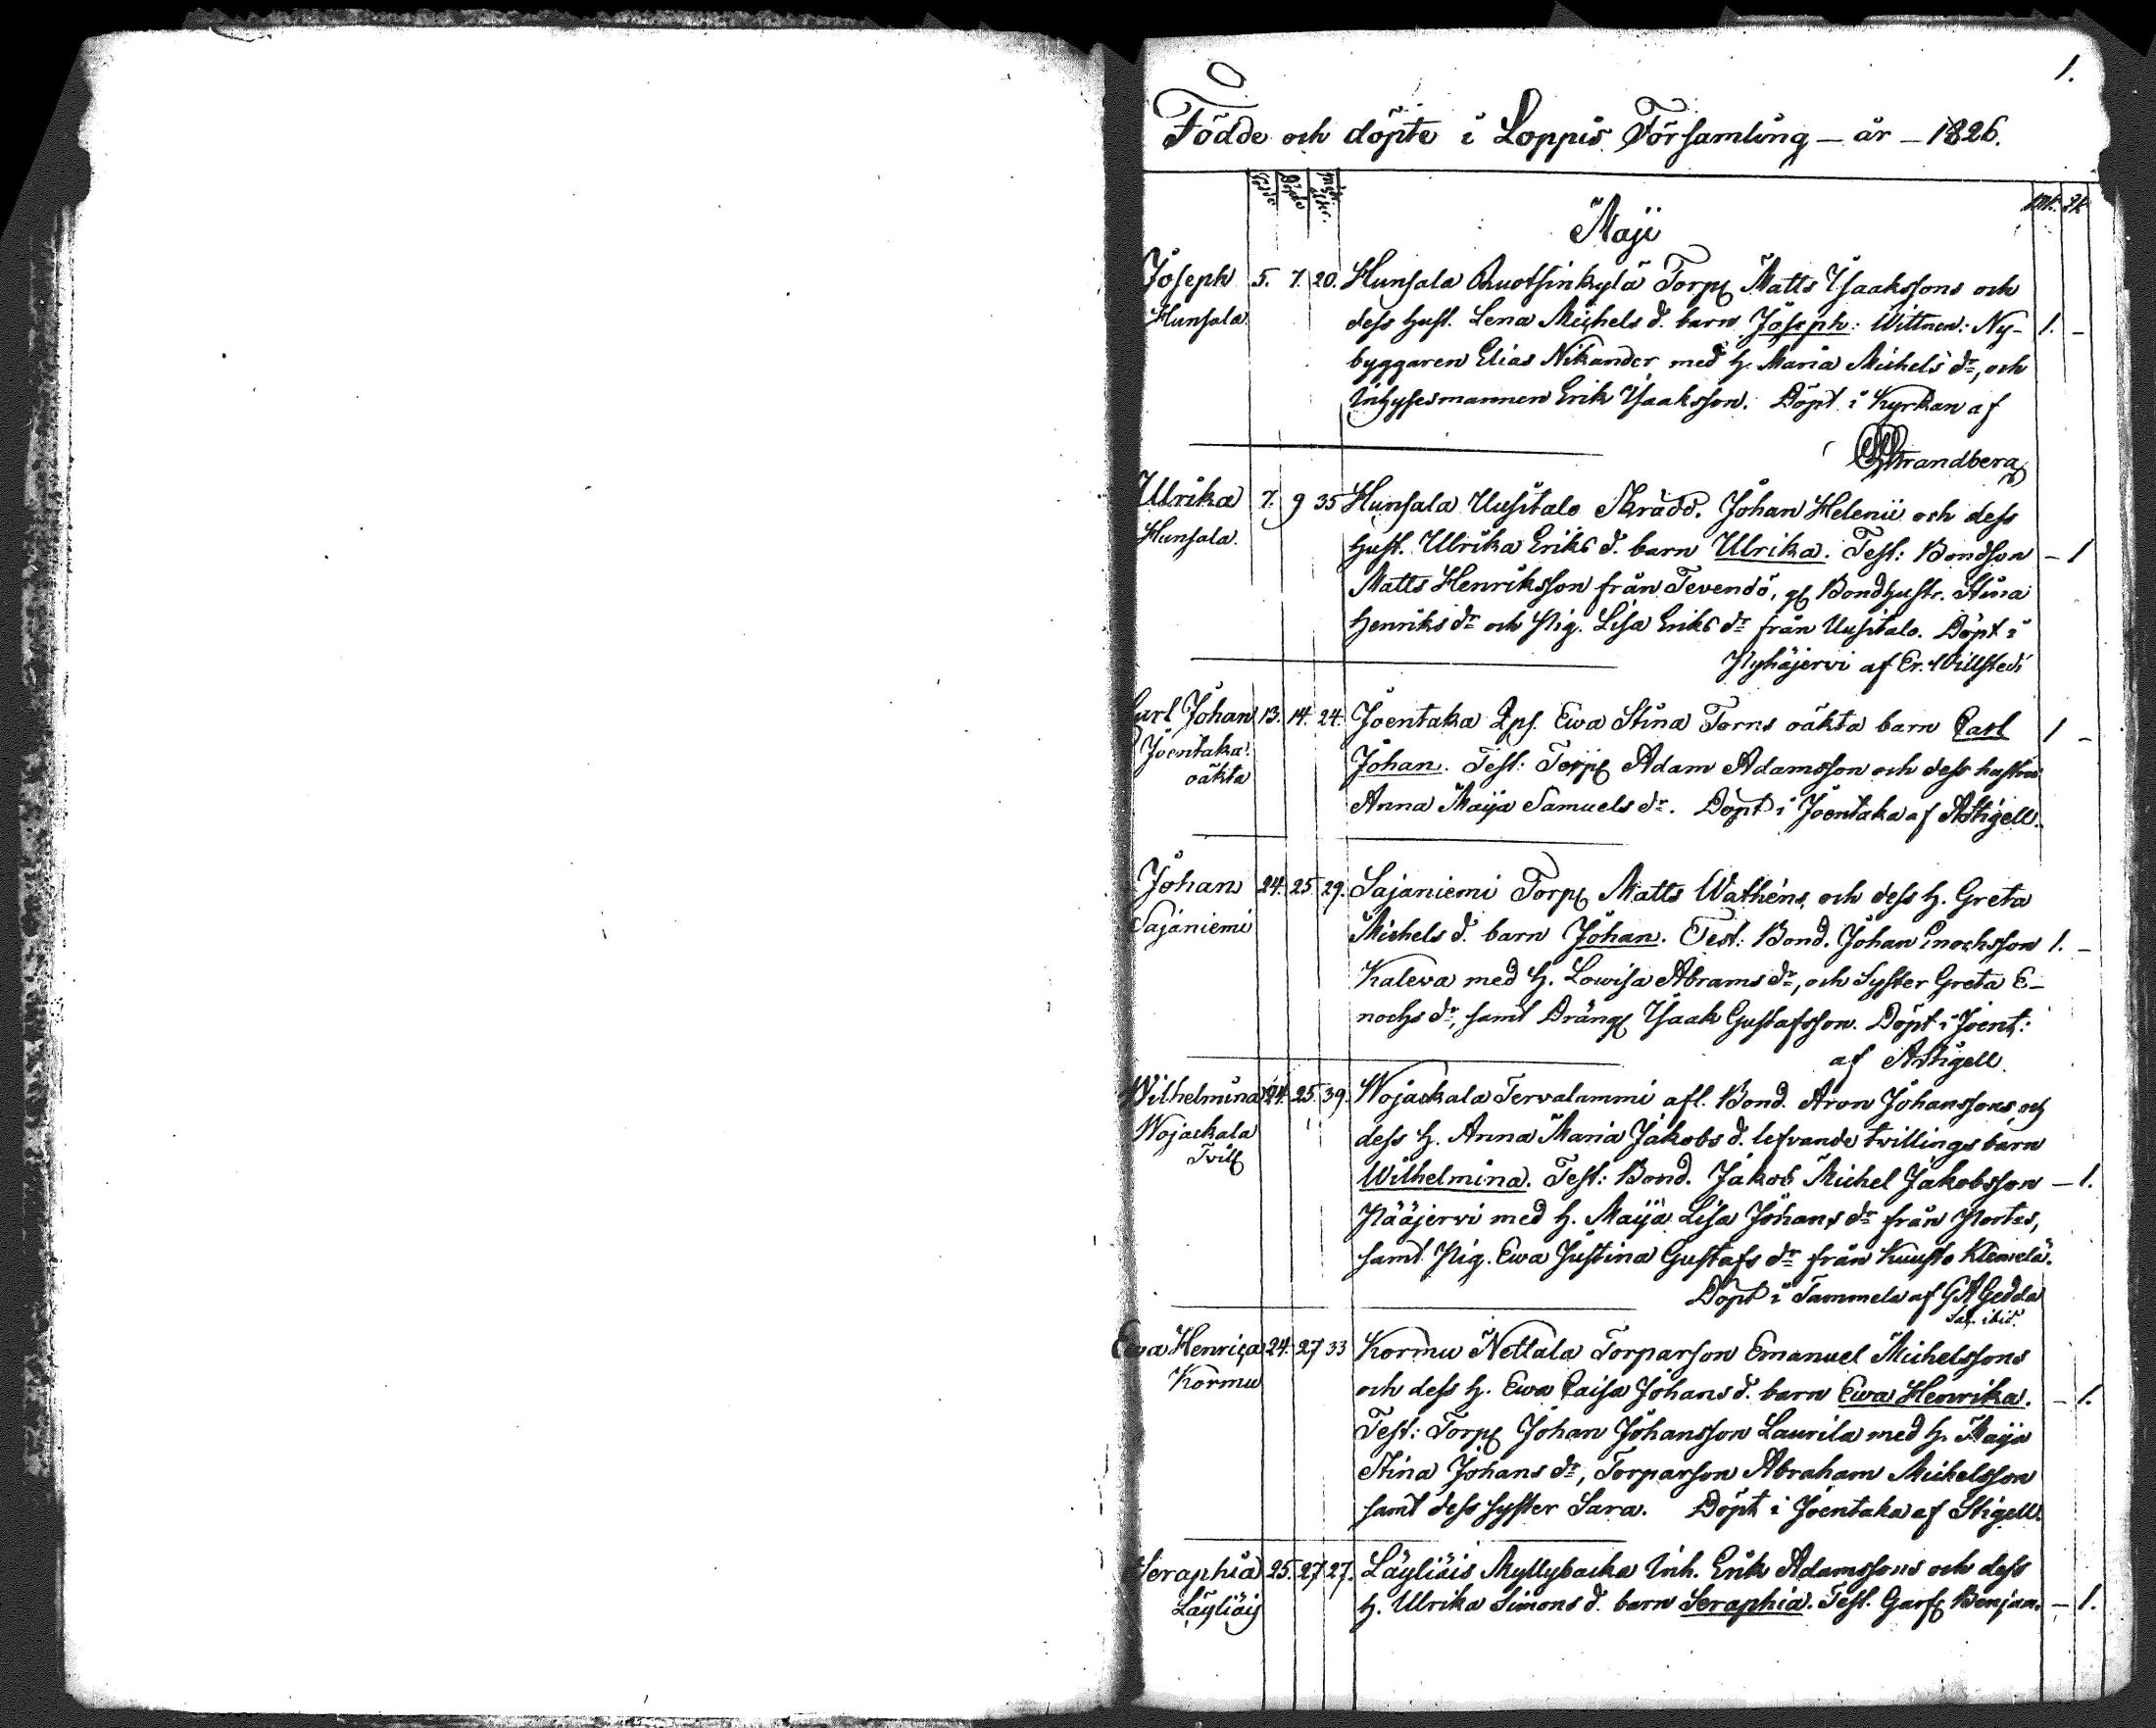 1.
Födde och döpte i Loppis Församling – år – 1826.
Födde Döpte Mk. Qk.
Maji
Joseph 5. 7. 20. Hunsala Ruotsinkylä Torp. Matts Isaakssons och
Hunsala dess hust. Lena Michels d. barn Joseph: Wittnen: Ny- 1. –
byggaren Elias Nikander med h. Maria Michels dr, och
Inhysesmannen Erik Isaaksson. Döpt i Kyrkan af
Strandberg
Ulrika 7. 9 35 Hunsala Uusitalo Skrädd. Johan Helenii och dess
Hunsala. hust. Ulrika Eriks d. barn Ulrika. Test: Bondson – 1
Matts Henriksson från Tevendö, gl. Bondhustr. Stina
Henriks dr och Pig. Lisa Eriks dr från Uusitalo. Döpt i
Pyhäjervi af Er. Willstedt
Carl Johan 13. 14. 24. Joentaka Qps. Ewa Stina Torns oäkta barn Carl 1 –
Joentaka. Johan. Test: Torp. Adam Adamsson och dess hustru
oäkta Anna Maija Samuels dr. Döpt i Joentaka af AStigell.
Johan 24. 25 29. Sajaniemi Torp. Matts Wathéns och dess h. Greta
Sajaniemi Michels d. barn Johan. Test: Bond. Johan Enochsson 1. –
Kaleva med h. Lowisa Abrams dr, och Syster Greta E-
nochs dr, samt Dräng Isaak Gustafsson. Döpt i Joent:
af AStigell.
Wilhelmina 24. 25. 39. Wojackala Tervalammi afl. Bond. Aron Johanssons och
Wojackala dess h. Anna Maria Jakobs d. lefvande tvillings barn
Tvill. Wilhelmina. Test: Bond. Jakob Michel Jakobsson – 1.
Pääjervi med h. Maija Lisa Johans dr från Portas,
samt Pig. Ewa Justina Gustafs dr från Kuusto Klemelä.
Döpt i Tammela af GAGedda
Sac. ibid.
Ewa Henrica 24. 27 33 Kormu Nettala Torparson Emanuel Michelssons
Kormu och dess h. Ewa Caisa Johans d. barn Ewa Henrika. – 1.
Test: Torp. Johan Johansson Laurila med h. Maija
Stina Johans dr, Torparson Abraham Michelsson
samt dess syster Sara. Döpt i Joentaka af Stigell.
Seraphia 25. 27 27. Läyliäis Myllybacka Inh. Erik Adamssons och dess
Läyliäis h. Ulrika Simons d. barn Seraphia. Test. Garf. Benjam. – 1.